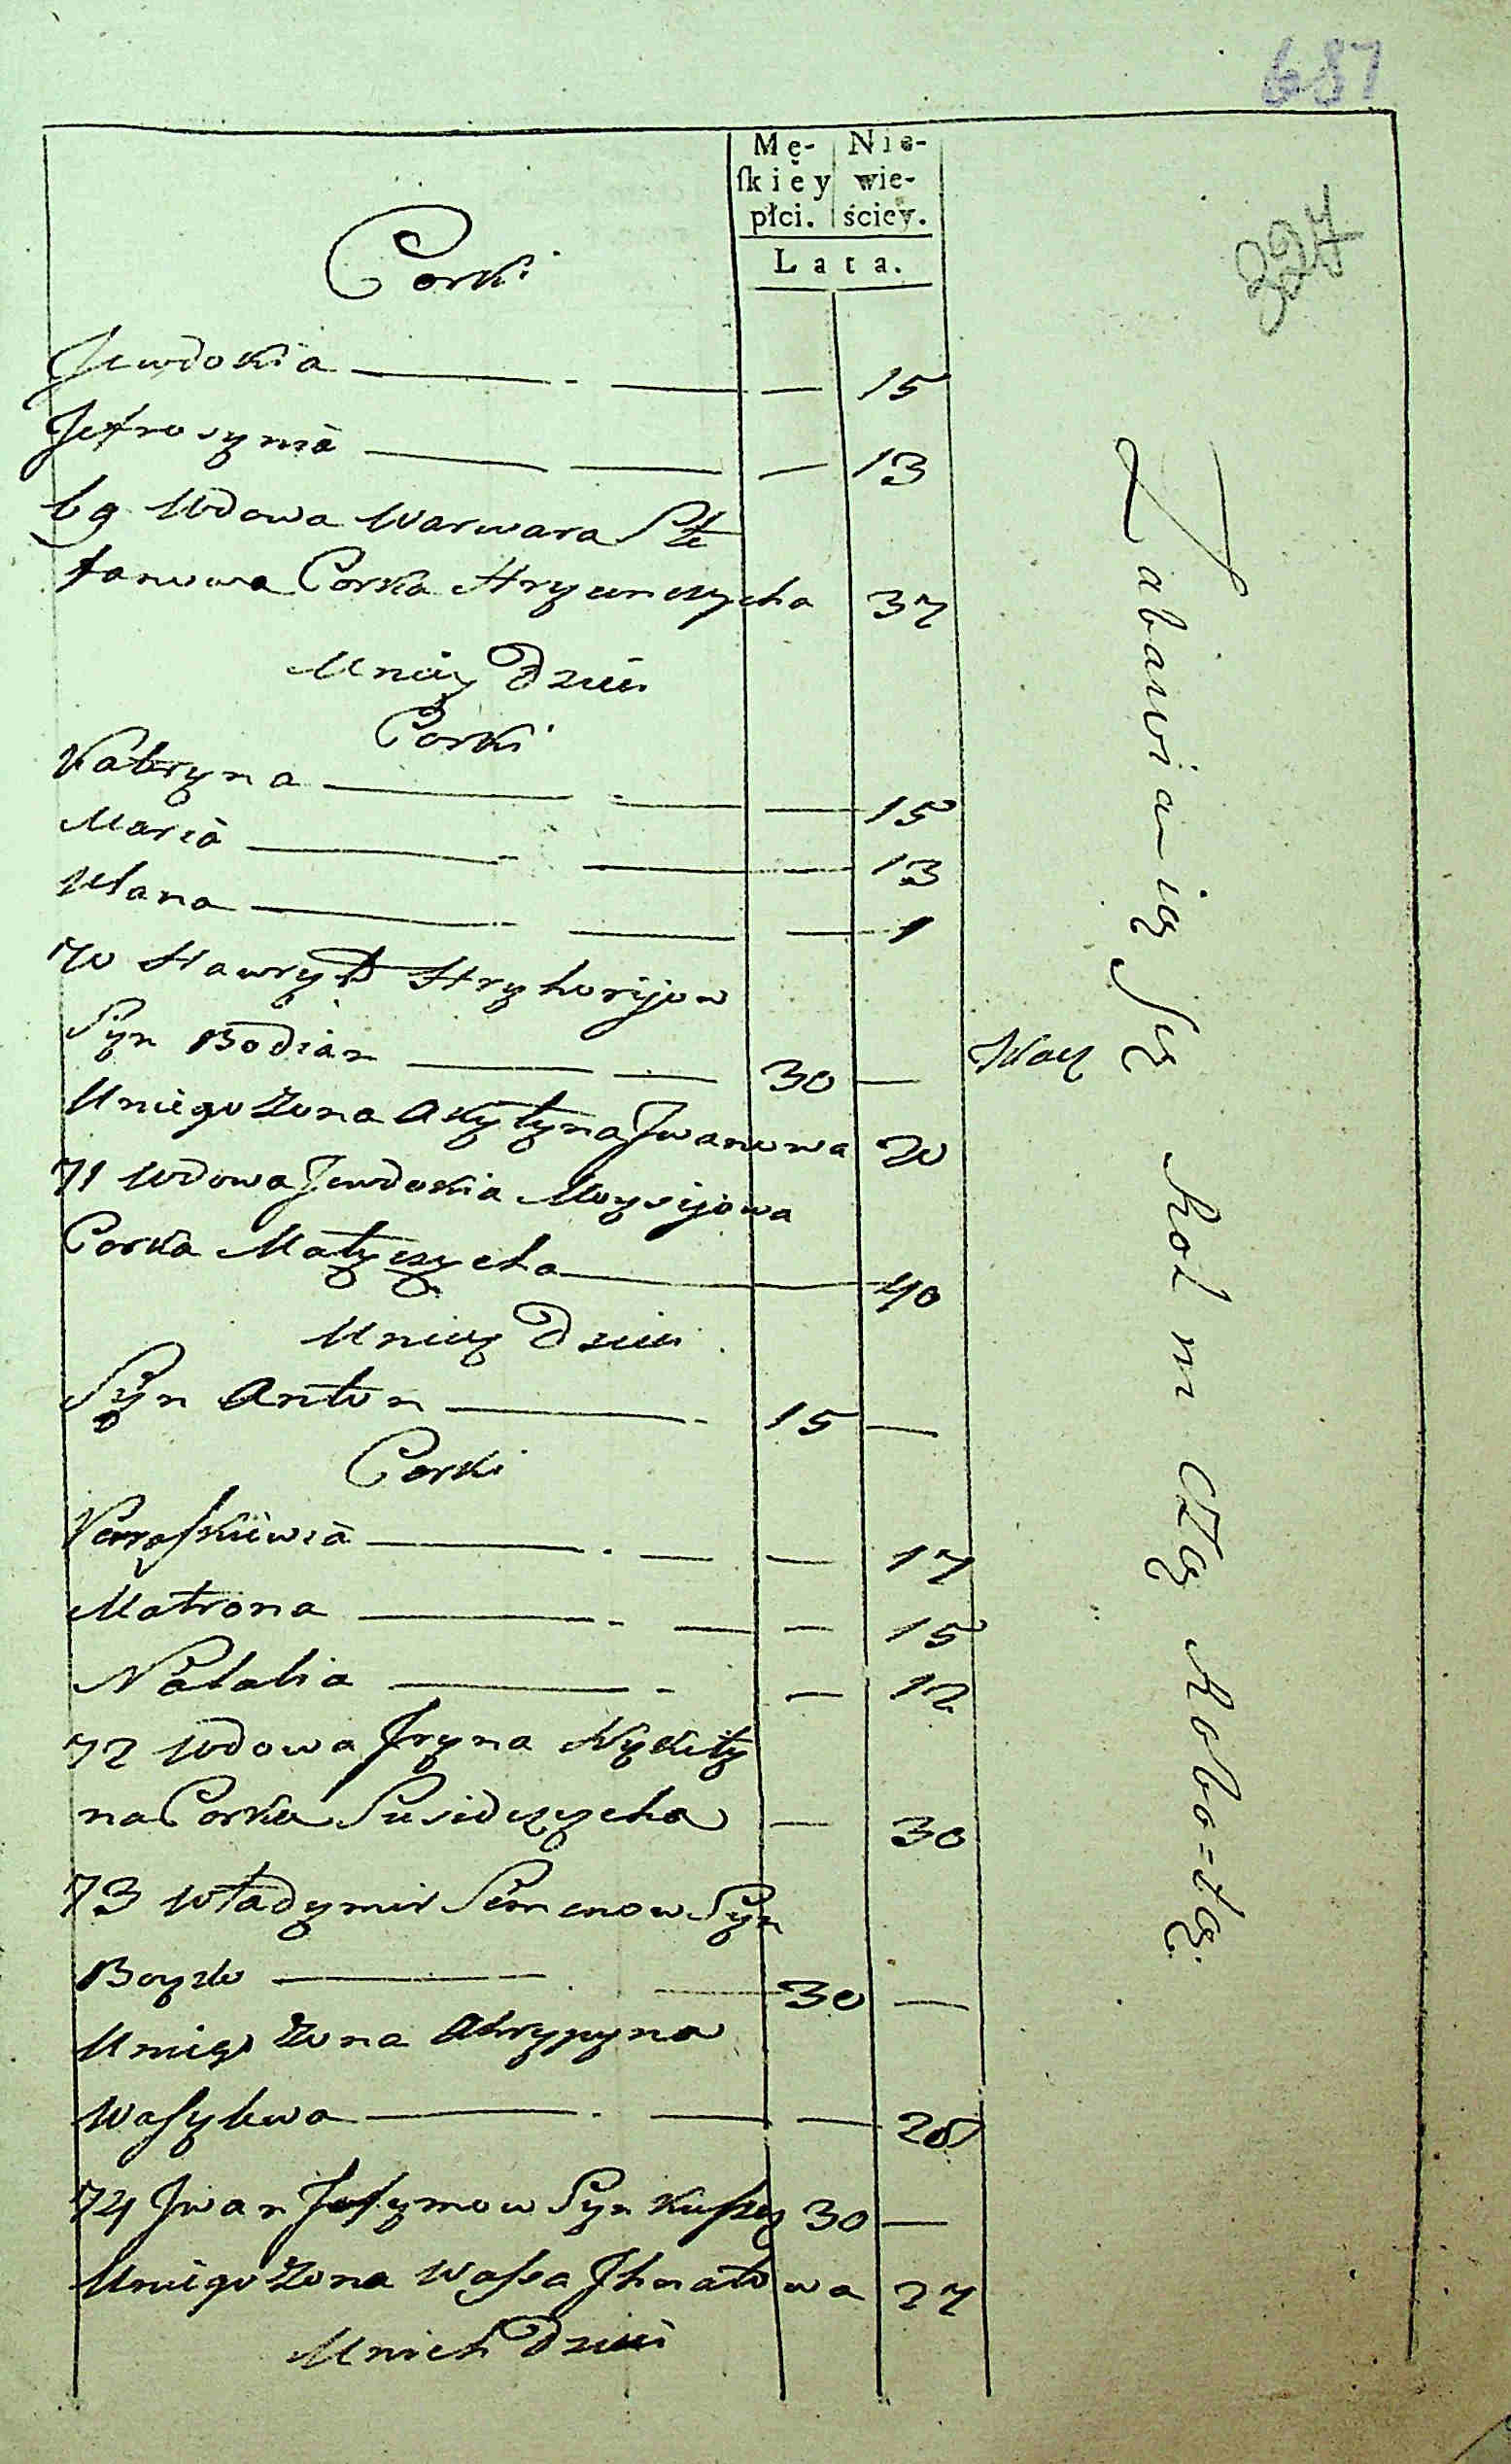 687
Mę- Nie-
ſkiey wie-
płci. ściey.
Lata.
327
Corki
Jewdokia — — — 15
Jefrosynia — — — 13
69 Wdowa Warwara Ste
fanowa Corka 37
Uniey Dzieci
Corki
Kateryna — — — 15
Maria — — — 13
Ulana — — — 1
70 Hawryło Hryhorijow
Syn Bodian — — 30 —
Uniego Zona Akylyna Iwanowa 20
71 Wdowa Jewdokia Moysijowa
Corka Małyszycha — 40
Uniey Dzieci
Syn Anton — 15 —
Corki
Paraskiewia — — — 17
Matrona — — — 15
Natalia — — 12
72 Wdowa Iryna Nykity
na Corka Susidczycha — 30
73 Wladymir Semenow Syn
Boyko — — 30 —
Uniego Zona Ahrypyna
Wasylewa — — — 28
74 Iwan Josypow Syn 30 —
Uniego Zona Wassa Ihnatowa 27
Unich Dzieci
Zabawiaią się Rolniczą Robo=tą.